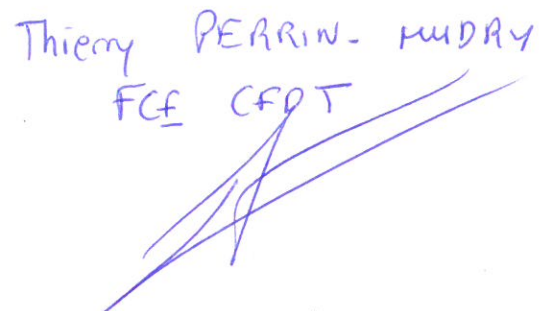 Thierry PERRIN-MUDRY
FCE CFDT